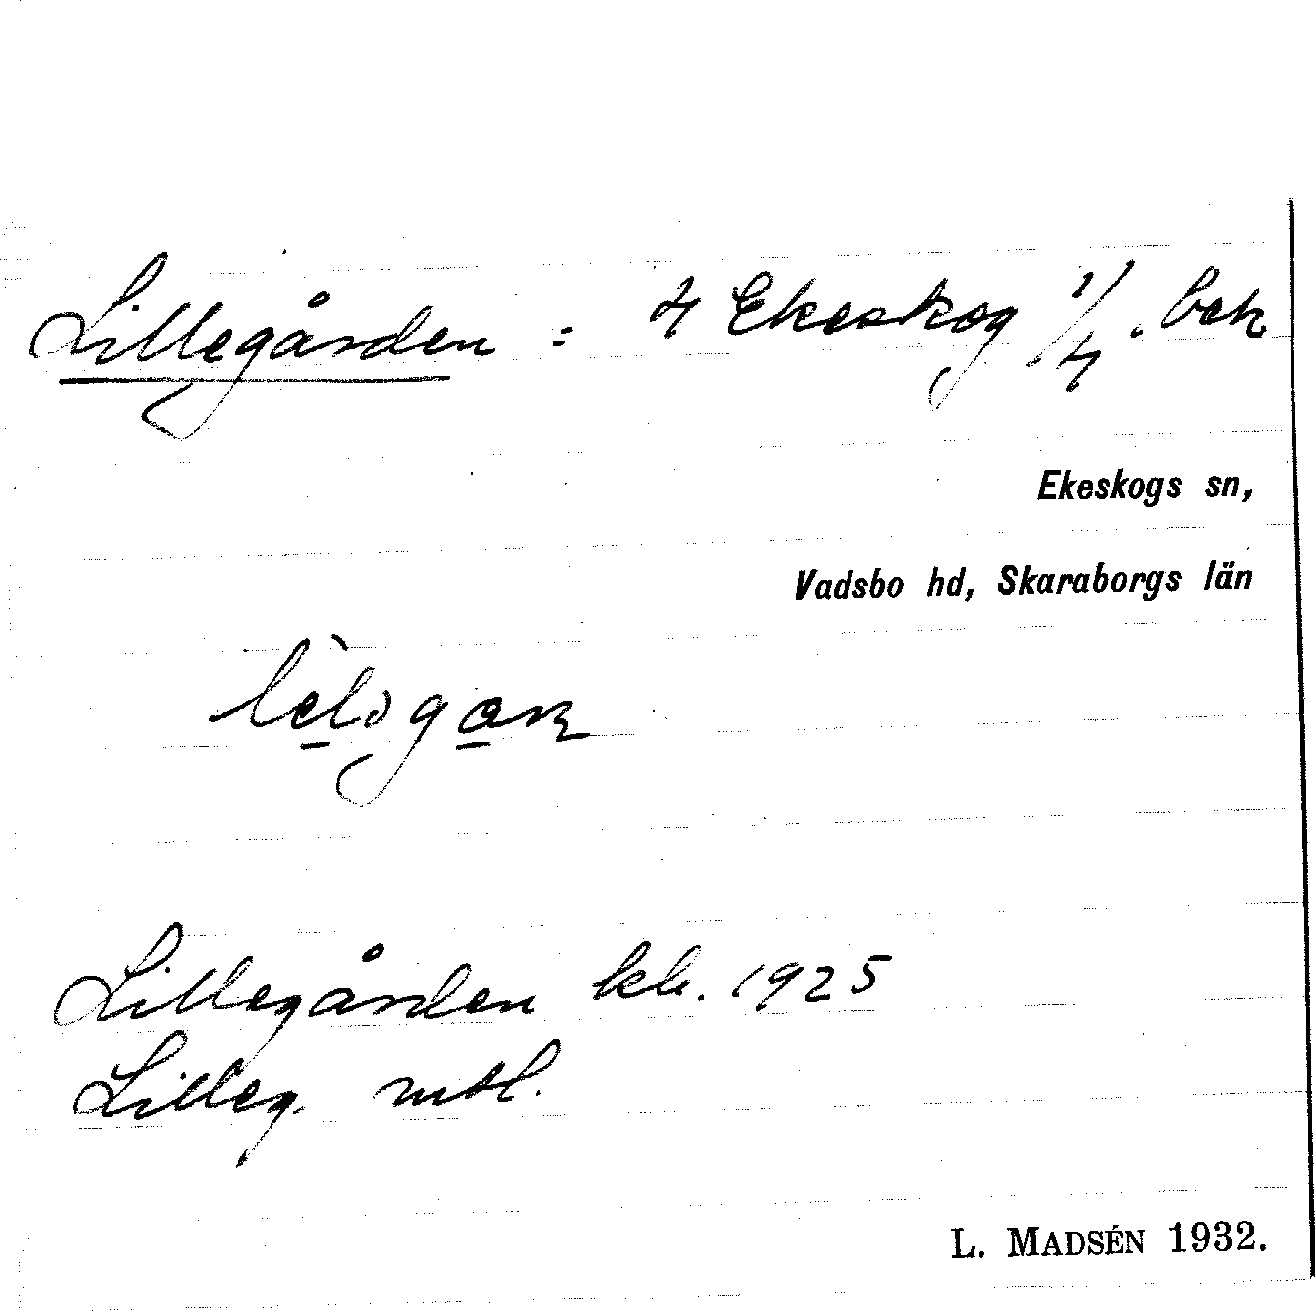 Lillegården = 4 Ekeskog 1/4. beb
Ekeskogs sn,
Vadsbo hd, Skaraborgs län
Lillegården kb. 1925
Lilleg. mtl.
L. MADSÉN 1932.